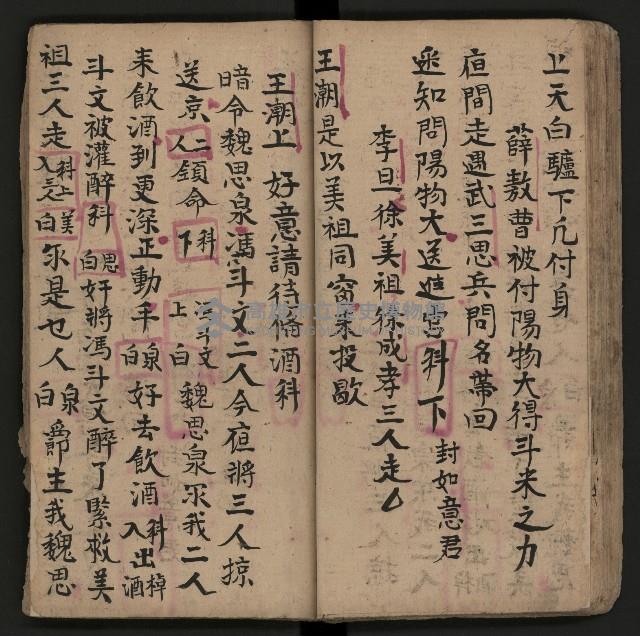 上天白驢下凢付身
薛敖曹被付陽物大得斗米之力
疽問走遇武三思兵問名帶回
迯知問陽物大送進上科下 封如意君
李旦徐美祖徐成孝三人走
王潮是以美祖同窗来投歇
王潮上 好意請待俻酒科
暗令魏思泉馮斗文二人今疽將三人掠
送京二人領命科下馮斗文上白魏思泉尔我二人
来飲酒到更深正動手泉白好去飲酒科入出棹酒
斗文被灌醉科思白好將馮斗文醉了緊救美
祖三人走科上入三人美白尔是乜人泉白爵主我魏思
高雄市立歷史博物館